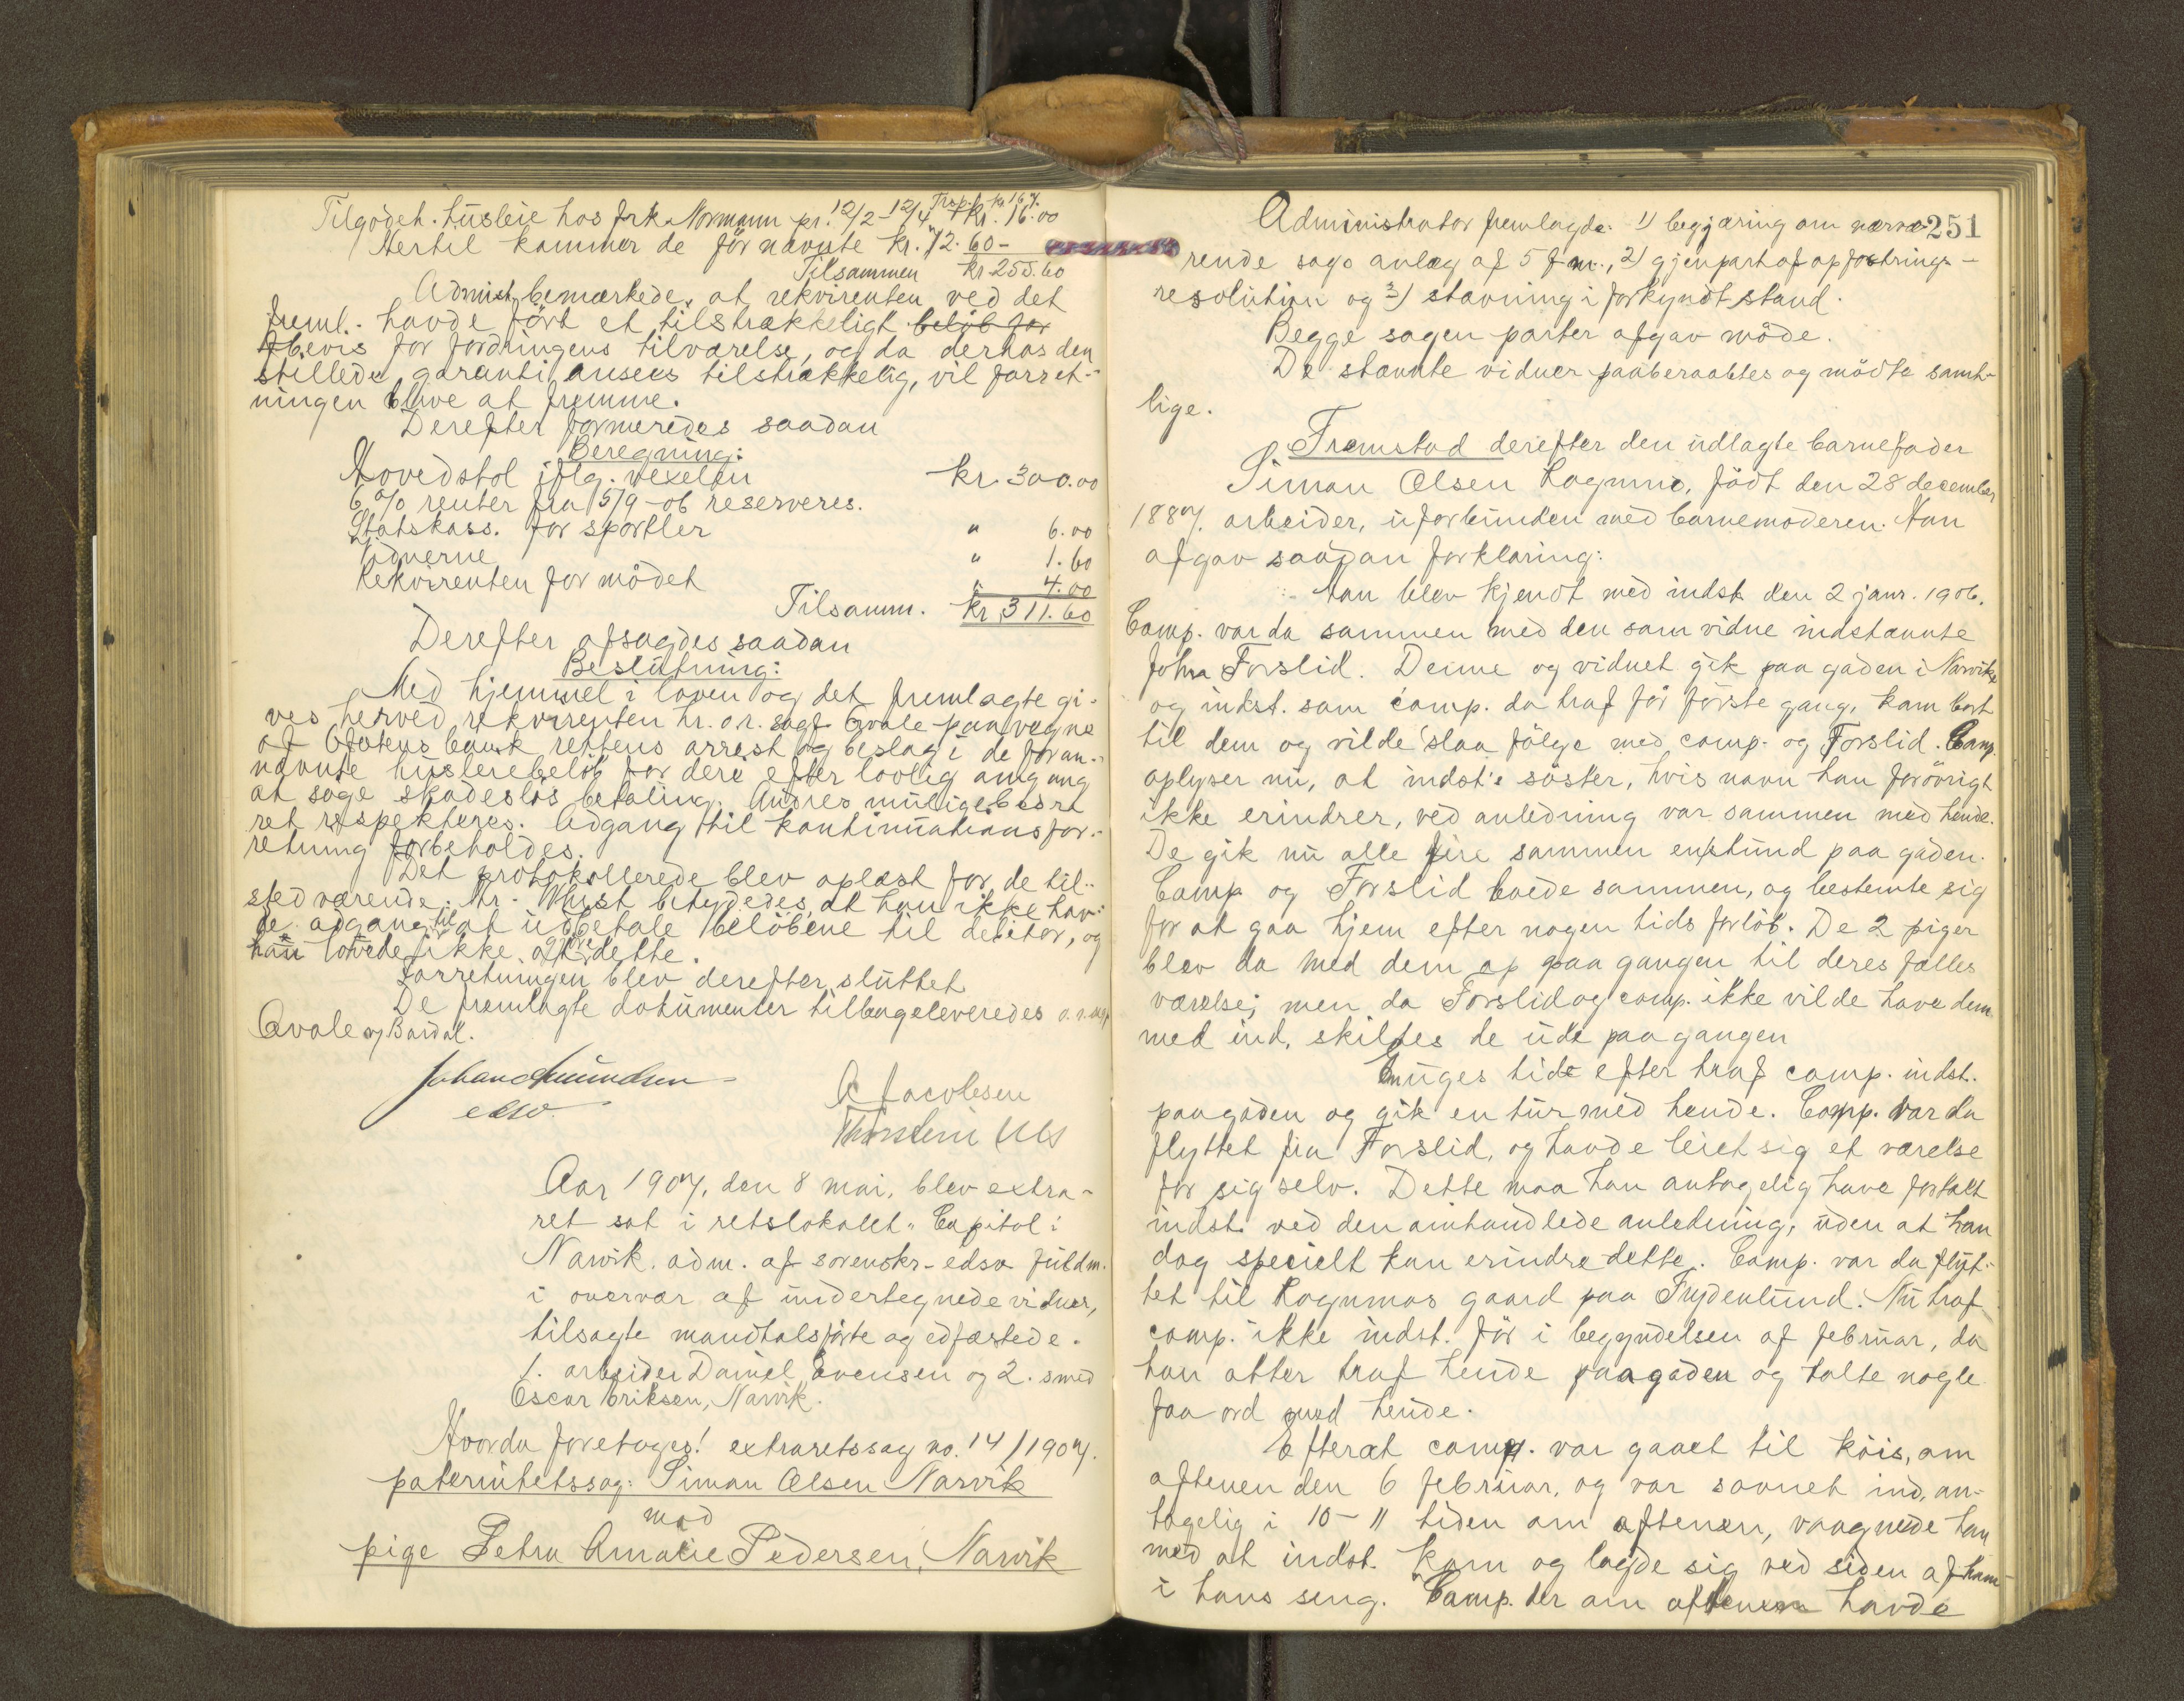 Trsp. kr. 167.
Tilgodeh. husleie hos frk. Normann pr. 12/2-12/4 kr. 16.00
Hertil kommer de før nævnte kr. 72.60-
Tilsammen kr 255.60
Admist. bemærkede, at rekvirenten ved det
freml. havde ført et tilstrækkeligt beløb for
bevis for fordringens tilværelse, og da derhos den
stillede garanti ansees tilstrækkelig, vil forret-
ningen blive at fremme.
Derefter formeredes saadan
Beregning:
Hovedstol iflg. vexelen kr. 300.00
6% renter fra 15/9-06 reserveres.
Statskass. for sportler " 6.00
Vidnerne " 1.60
Rekvirenten for mødet " 4.00
Tilsamm. kr 311.60
Derefter afsagdes saadan
Beslutning:
Med hjemmel i loven og det fremlagte gi-
ves herved rekvirenten hr. o.r. sagf. Qvale paa vegne
af Ofotens bank rettens arrest og beslag i de foran-
nævnte husleiebeløb for deri efter lovlig omgang
at søge skadesløs betaling. Andres mulige bedre
ret respekteres. Adgang til kontinuationsfor-
retning forbeholdes.
Det protokollerede blev oplæst for de til-
stedværende. Hr. Wust betydedes, at han ikke hav-
de adgang til at udbetale beløbene til debitor, og
han lovede ikke at gjøre dette.
Forretningen blev derefter sluttet
De fremlagte dokumenter tilbageleveredes o.r.sagf.
Qvale og Bardal.
Johan Amundsen
edsv.
A Jacobsen
Thorstein Uls
Aar 1907, den 8 mai, blev extra-
ret sat i retslokalet "Capitol i
Narvik. adm. af sorenskr. edsv fuldm.
i overvær af undertegnede vidner,
tilsagte mandtalsførte og edfæstede.
1. arbeider Daniel Evensen og 2. smed
Oscar Eriksen, Narvik.
Hvorda foretages: extraretssag no. 14/1907.
paternitetssag: Simon Olsen Narvik
mod
pige Petra Amalie Pedersen, Narvik
251
Administrator fremlagde: 1) begjæring om nærvæ-
rende sags anlæg af 5 f.m., 2) gjenpart af opfostrings-
resolution og 3) stævning i forkyndt stand.
Begge sagen parter afgav møde.
De stævnte vidner paaberaabtes og mødte samt-
lige.
Fremstod derefter den udlagte barnefader
Simon Olsen Lagumo, født den 28 december
1887. arbeider, uforbunden med barnemoderen. Han
afgav saadan forklaring:
Han blev kjendt med indst. den 2 janr. 1906.
Comp. var da sammen med den som vidne indstævnte
John Forslid. Denne og vidnet gik paa gaden i Narvik,
og indst. som comp. da traf for første gang, kom bort
til dem og vilde slaa følge med comp. og Forslid. Comp.
oplyser nu, at indst's søster, hvis navn han forøvrigt
ikke erindrer, ved anledning var sammen med hende.
De gik nu alle fire sammen en stund paa gaden.
Comp og Forslid boede sammen, og bestemte sig
for at gaa hjem efter nogen tids forløb. De 2 piger
blev da med dem op paa gangen til deres fælles
værelse; men da Forslid og comp. ikke vilde have dem
med ind, skiltes de ude paa gangen
En uges tid efter traf comp. indst.
paa gaden og gik en tur med hende. Comp. var da
flyttet fra Forslid, og havde leiet sig et værelse
for sig selv. Dette maa han antagelig have fortalt
indst. ved den omhandlede anledning, uden at han
dog specielt kan erindre dette. Comp. var da flyt-
tet til Lagumos gaard paa Frydenlund. Nu traf
comp. ikke indst. før i begyndelsen af februar, da
han atter traf hende paa gaden og talte nogle
faa ord med hende.
Efterat comp. var gaaet til køis, om
aftenen den 6 februar, og var sovnet ind, an-
tagelig i 10-11 tiden om aftenen, vaagnede han
med at indst. kom og lagde sig ved siden af ham
i hans seng. Comp. der om aftenen havde